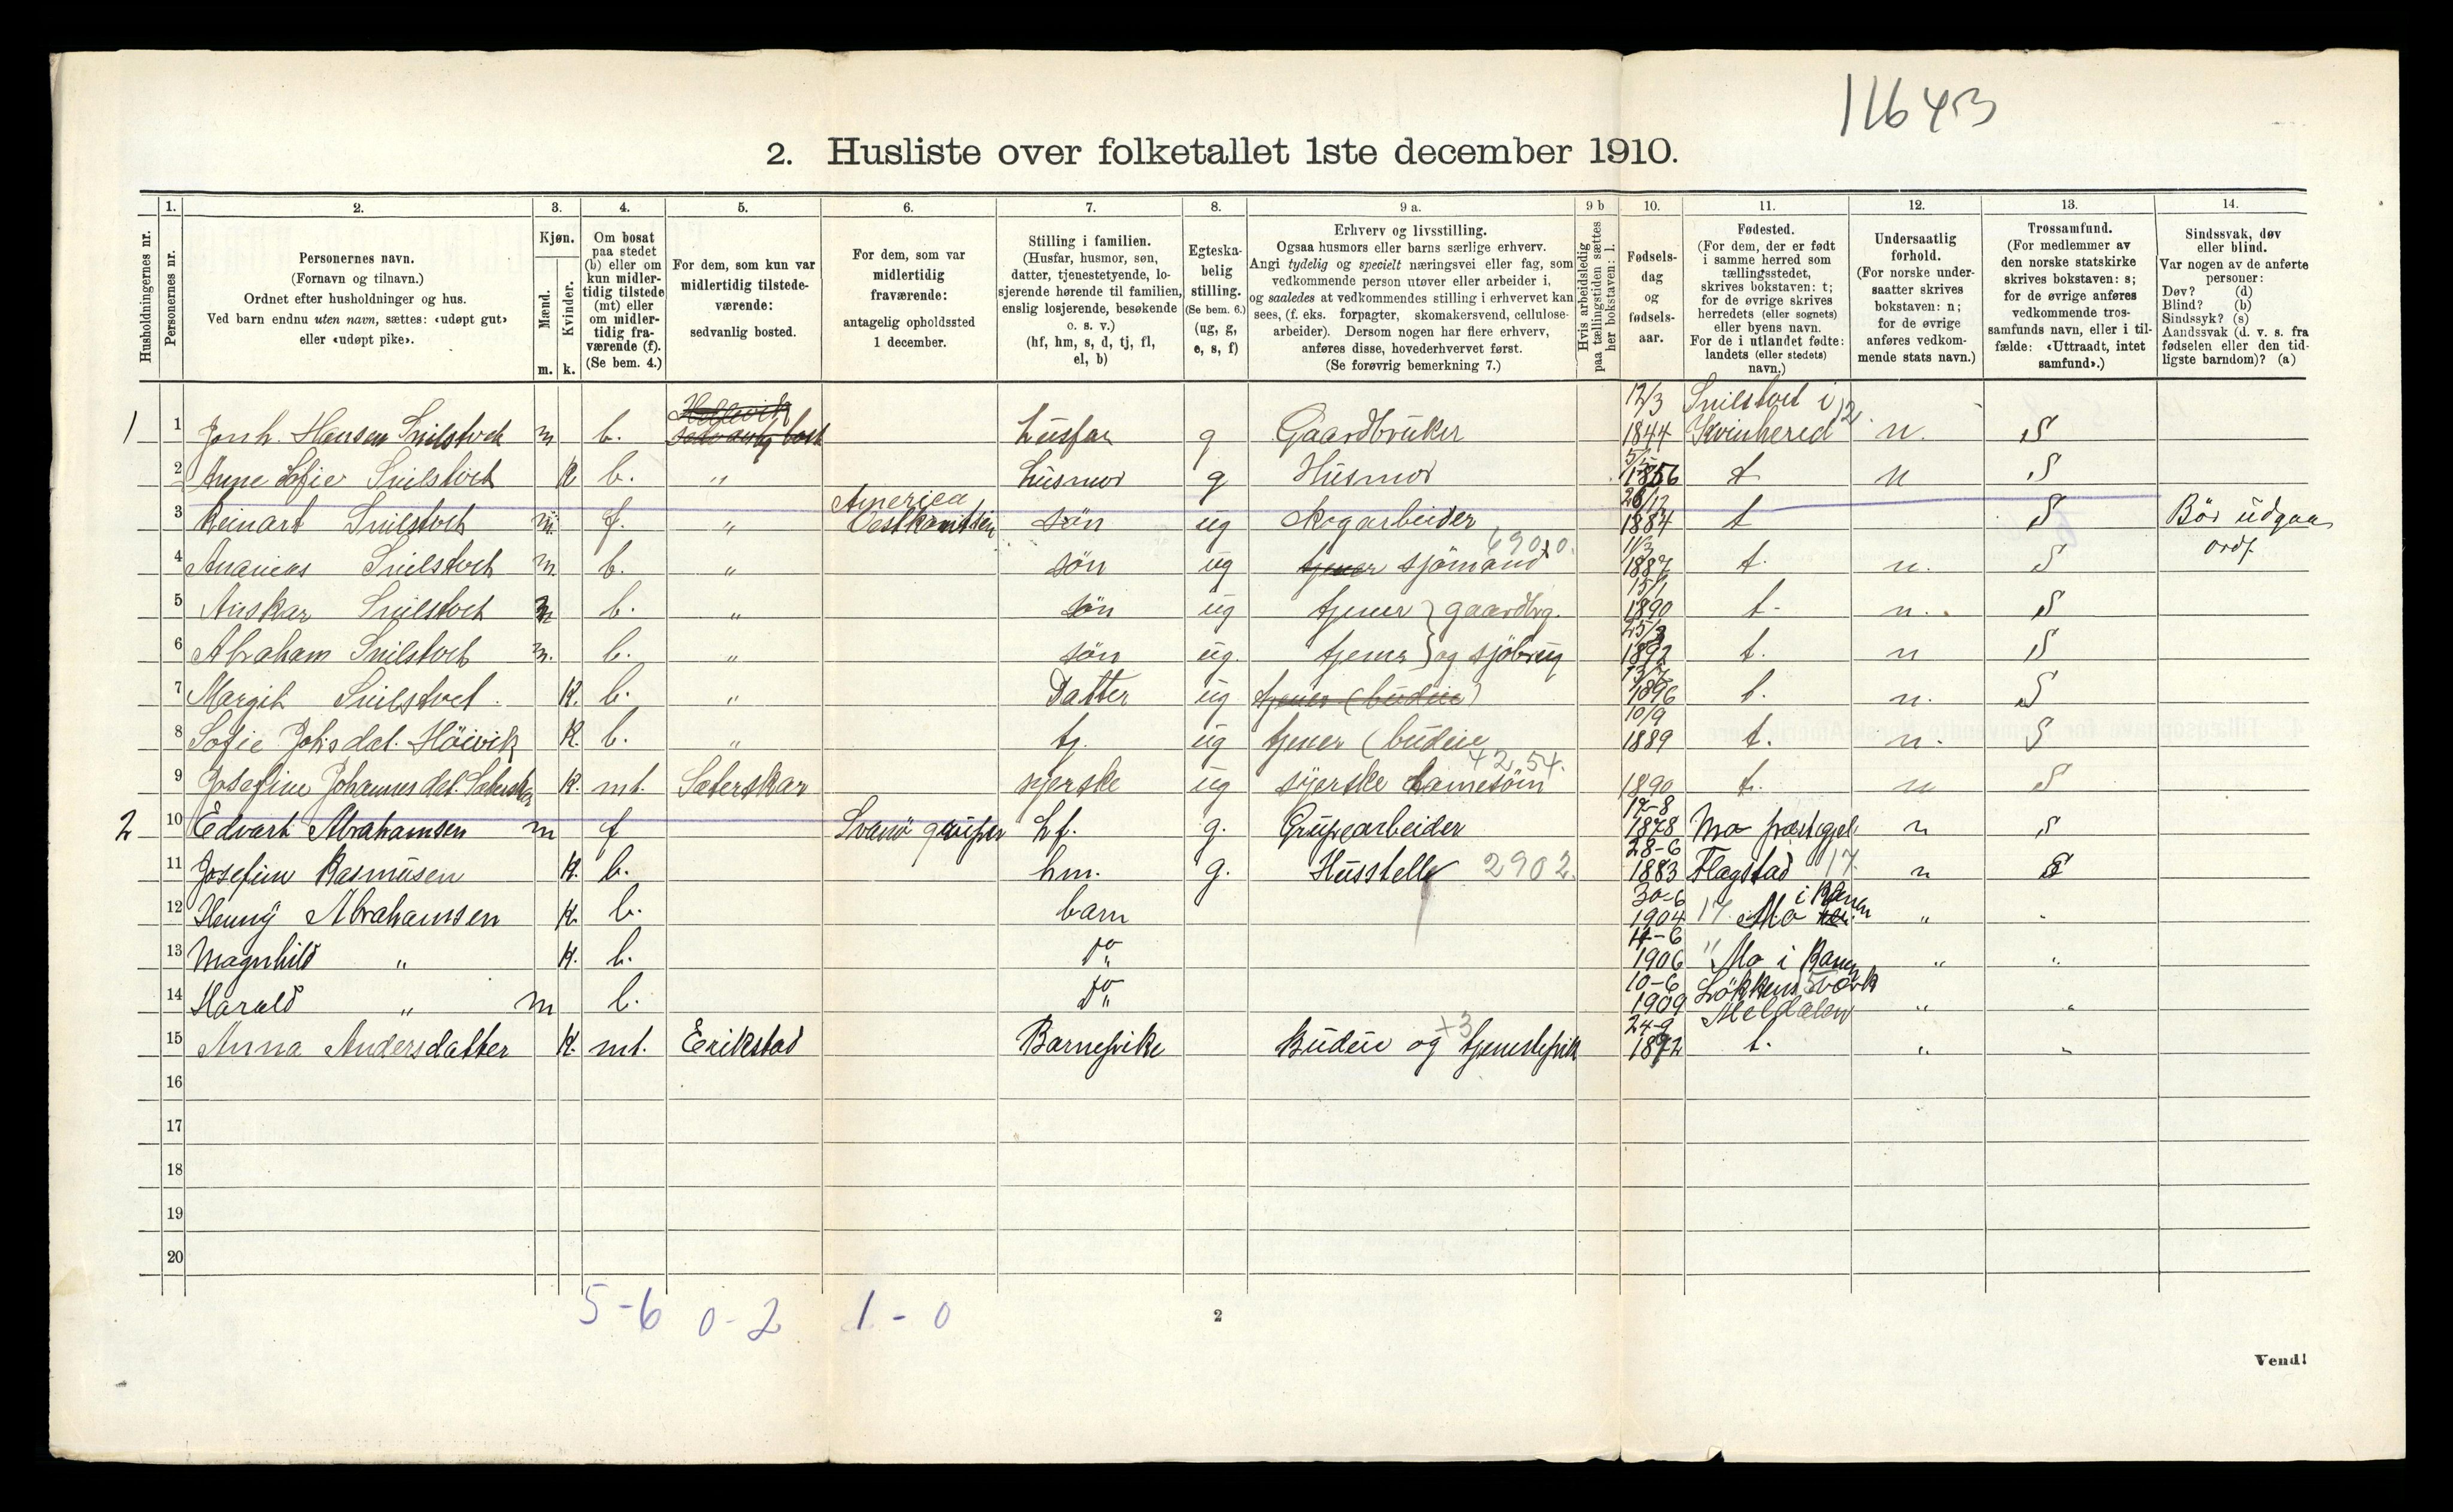 11643
2. Husliste over folketallet 1ste december 1910.
1. 2. 3. 4. 5. 6. 7. 8. 9 a. 9 b 10. 11. 12. 13. 14.
Husholdningernes nr.
Personernes nr.
Personernes navn.
(Fornavn og tilnavn.)
Ordnet efter husholdninger og hus.
Ved barn endnu uten navn, sættes: «udøpt gut»
eller «udøpt pike».
Kjøn.
Mænd.
Kvinder.
m. k.
Om bosat
paa stedet
(b) eller om
kun midler-
tidig tilstede
(mt) eller
om midler-
tidig fra-
værende (f).
(Se bem. 4.)
For dem, som kun var
midlertidig tilstede-
værende:
sedvanlig bosted.
For dem, som var
midlertidig
fraværende:
antagelig opholdssted
1 december.
Stilling i familien.
(Husfar, husmor, søn,
datter, tjenestetyende, lo-
sjerende hørende til familien,
enslig losjerende, besøkende
o. s. v.)
(hf, hm, s, d, tj, fl,
el, b)
Egteska-
belig
stilling.
(Se bem. 6.)
(ug, g,
e, s, f)
Erhverv og livsstilling.
Ogsaa husmors eller barns særlige erhverv.
Angi tydelig og specielt næringsvei eller fag, som
vedkommende person utøver eller arbeider i,
og saaledes at vedkommendes stilling i erhvervet kan
sees, (f. eks. forpagter, skomakersvend, cellulose-
arbeider). Dersom nogen har flere erhverv,
anføres disse, hovederhvervet først.
(Se forøvrig bemerkning 7.)
Hvis arbeidsledig
paa tællingstiden sættes
her bokstaven: l.
Fødsels-
dag
og
fødsels-
aar.
Fødested.
(For dem, der er født
i samme herred som
tællingsstedet,
skrives bokstaven: t;
for de øvrige skrives
herredets (eller sognets)
eller byens navn.
For de i utlandet fødte:
landets (eller stedets)
navn.)
Undersaatlig
forhold.
(For norske under-
saatter skrives
bokstaven: n;
for de øvrige
anføres vedkom-
mende stats navn.)
Trossamfund.
(For medlemmer av
den norske statskirke
skrives bokstaven: s;
for de øvrige anføres
vedkommende tros-
samfunds navn, eller i til-
fælde: «Uttraadt, intet
samfund».)
Sindssvak, døv
eller blind.
Var nogen av de anførte
personer:
Døv? (d)
Blind? (b)
Sindssyk? (s)
Aandssvak (d. v. s. fra
fødselen eller den tid-
ligste barndom)? (a)
1 1 Jonh. Hansen Snilstvet m b. husfar g Gaardbruker 12/3 1844 Snilstvet i Kvinhered 12 n. S
2 Anne Sofie Snilstvet k b. " husmor g Husmor 1856 t n S
3 Reinart Snilstvet m. f. " America søn ug skogarbeider 1884 t S Bör udgaa
ordf.
4 Ananias Snilstvet m. b. " søn ug tjener sjömand 11/3 1887 t. n. S
5 Anskar Snilstvet m b. " søn ug tjener } gaardbrg. 15/1 1890 t. n. S
6 Abraham Snilstvet m. b. " søn ug. tjener } og sjöbrug 1892 t. n S
7 Margit Snilstvet k. b. " Datter ug tjener (budeie) 1896 t. n. S
8 Sofie Johsdat. Höivik k. b. " tj. ug tjener (budeie 10/9 1889 t. n. S
9 Josefine Johannesdat. Sæterskar k. mt. Sæterskar syerske ug syerske damesöm 42,54. 1890 t. n S
2 10 Edvart Abrahamsen m f Svanö gruper hf. g. Grupearbeider 1878 Mo præstgjel n S
11 Josefine Rasmusen k. b. hm. g. Husstelle 2902. 28-6 1883 Flagstad 17 n S
12 Henny Abrahamsen k. b. barn 30-6 1904 17 Mo i Ranen " "
13 Magnhild " k. b. do 1906 " Mo i Ranen " "
14 Harald " m b. do 10-6 1909 Lökkens Værk Meldalen " "
15 Anna Andersdatter k. mt. Erikstad Barnepike Budeie og tjenestepik 24-9 t. " "
16
17
18
19
20
5-6 0-2 1-0
2
Vend!